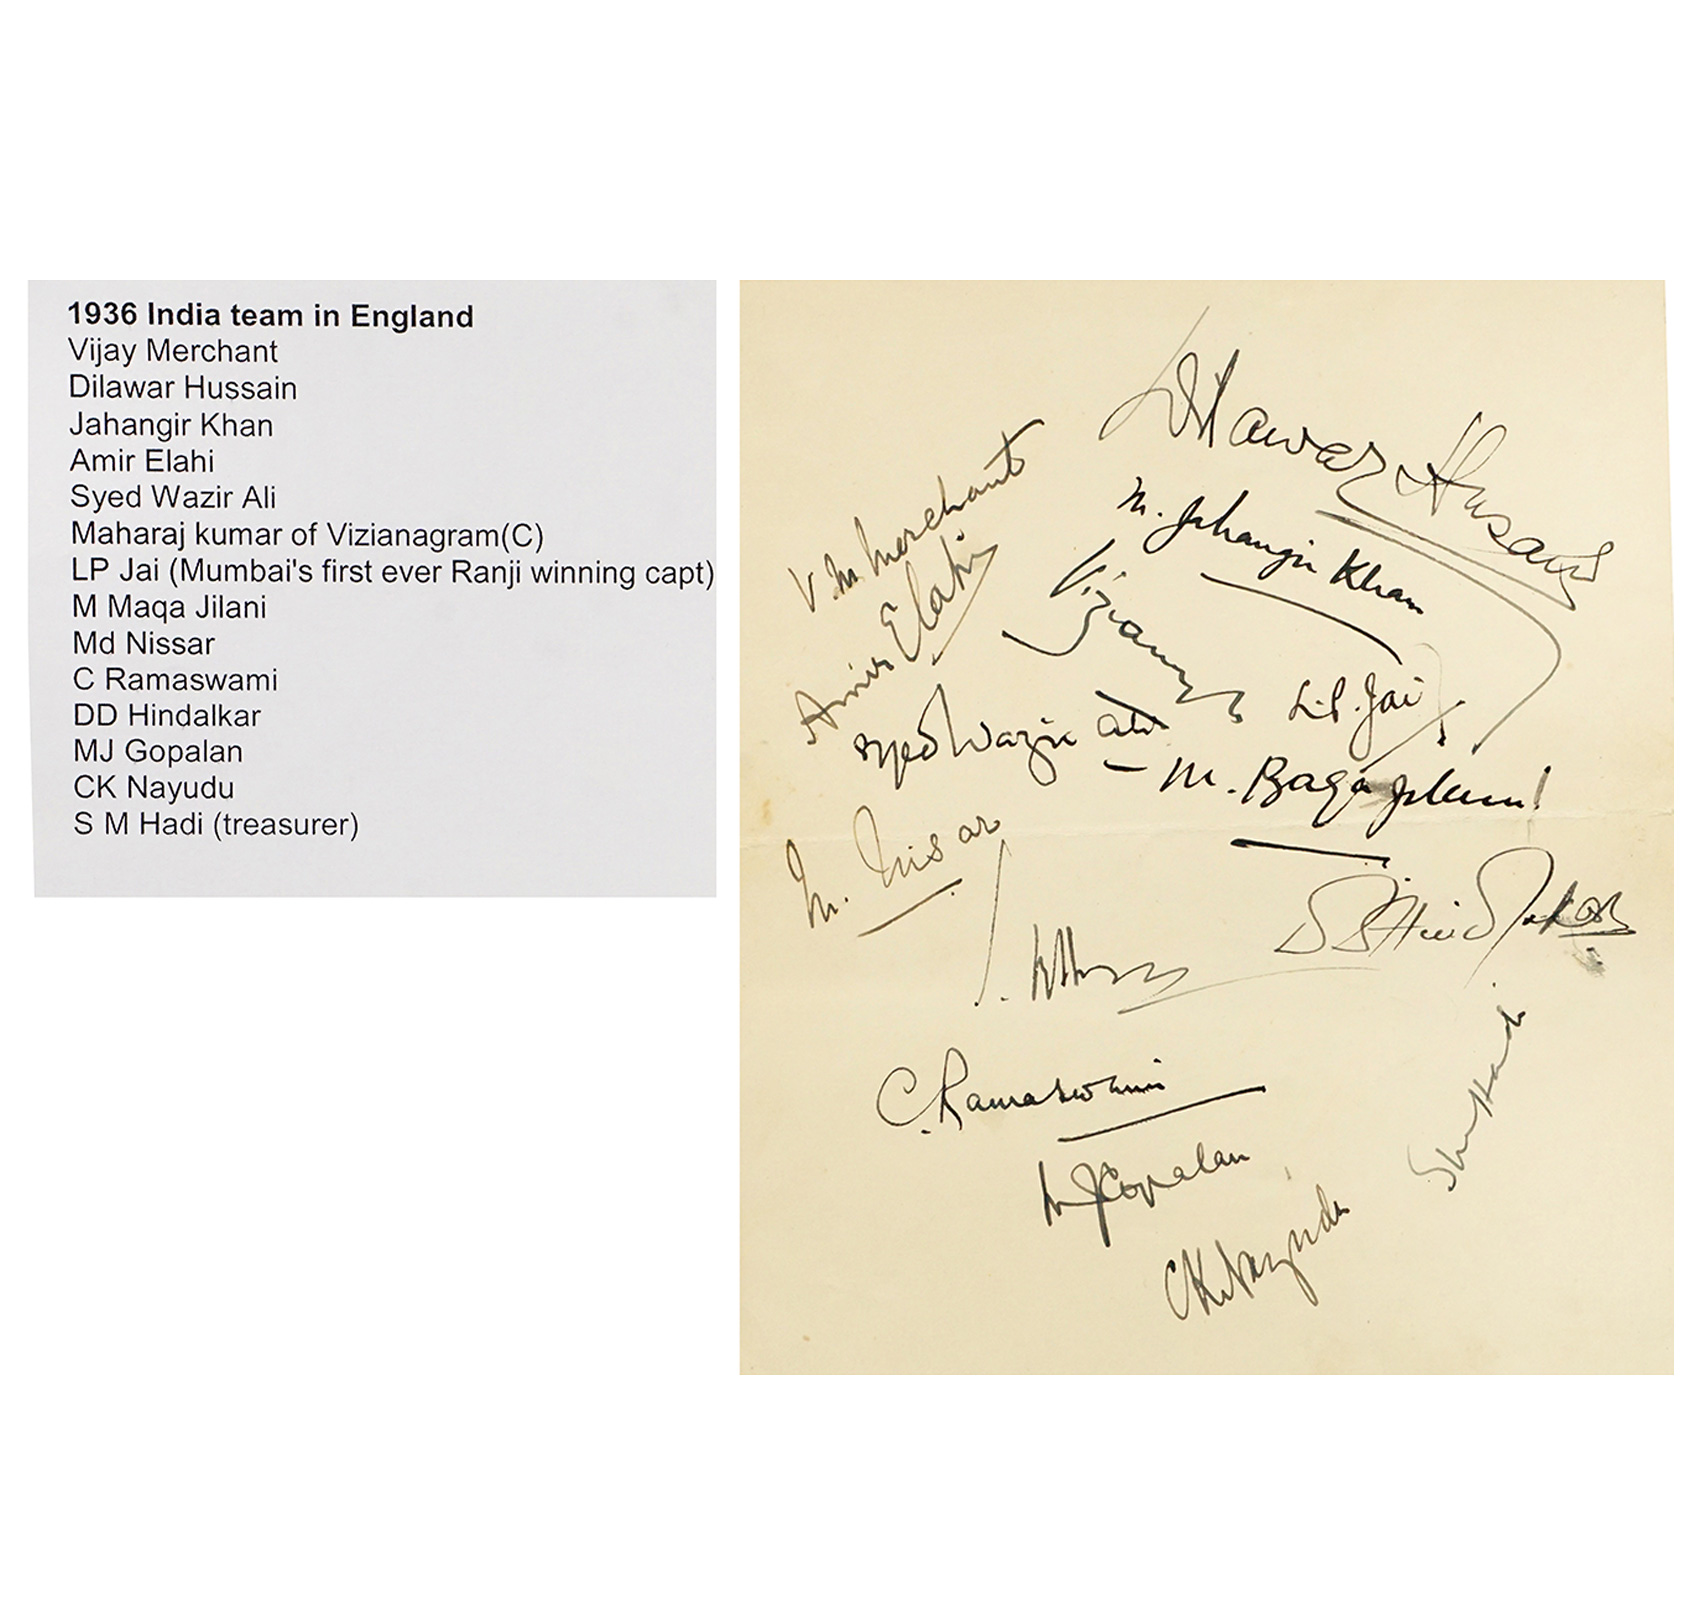 1936 India team in England
Vijay Merchant
Dilawar Hussain
Jahangir Khan
Amir Elahi
Syed Wazir Ali
Maharaj kumar of Vizianagram(C)
LP Jai (Mumbai's first ever Ranji winning capt)
M Maqa Jilani
Md Nissar
C Ramaswami
DD Hindalkar
MJ Gopalan
CK Nayudu
S M Hadi (treasurer)
Dilawar Husain
V. M. Merchant
M. Jahangir Khan
Amir Elahi
Vizianagram
Syed Wazir Ali
L.P. Jai
M. Baqa Jilani
M. Nisar
D D Hindlekar
C. Ramaswami
M J Gopalan
S M Hadi
C K Nayudu